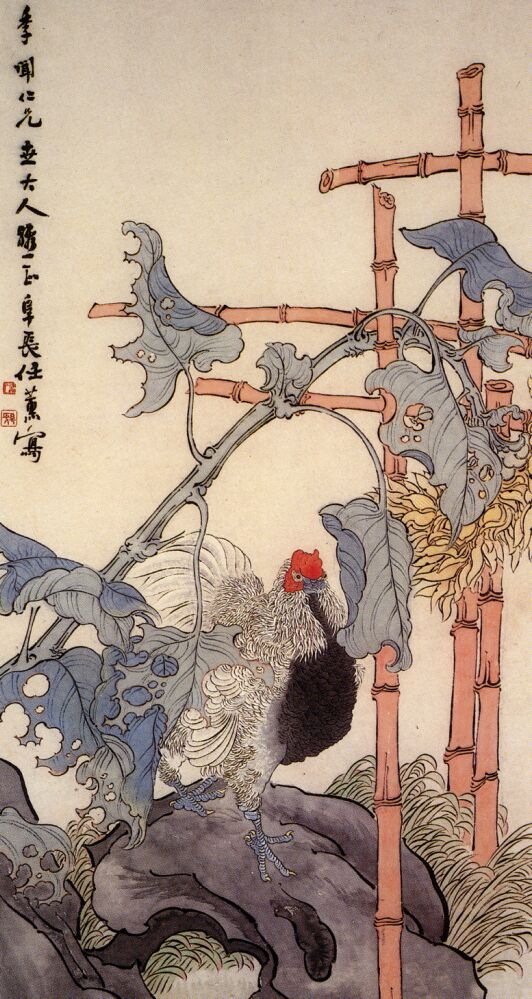 季聞仁兄世大人雅正阜長任薰寫